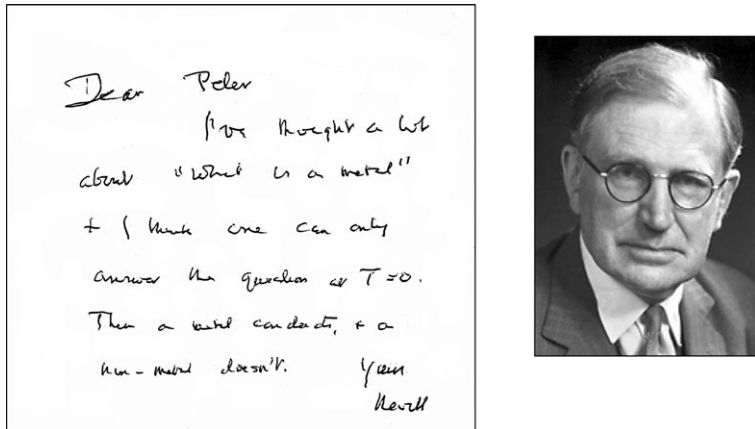 Dear Peter
I've thought a lot
about "What is a metal"
+ I think one can only
answer the question at T=0.
Then a metal conducts, + a
non-metal doesn't. Yours
Nevill